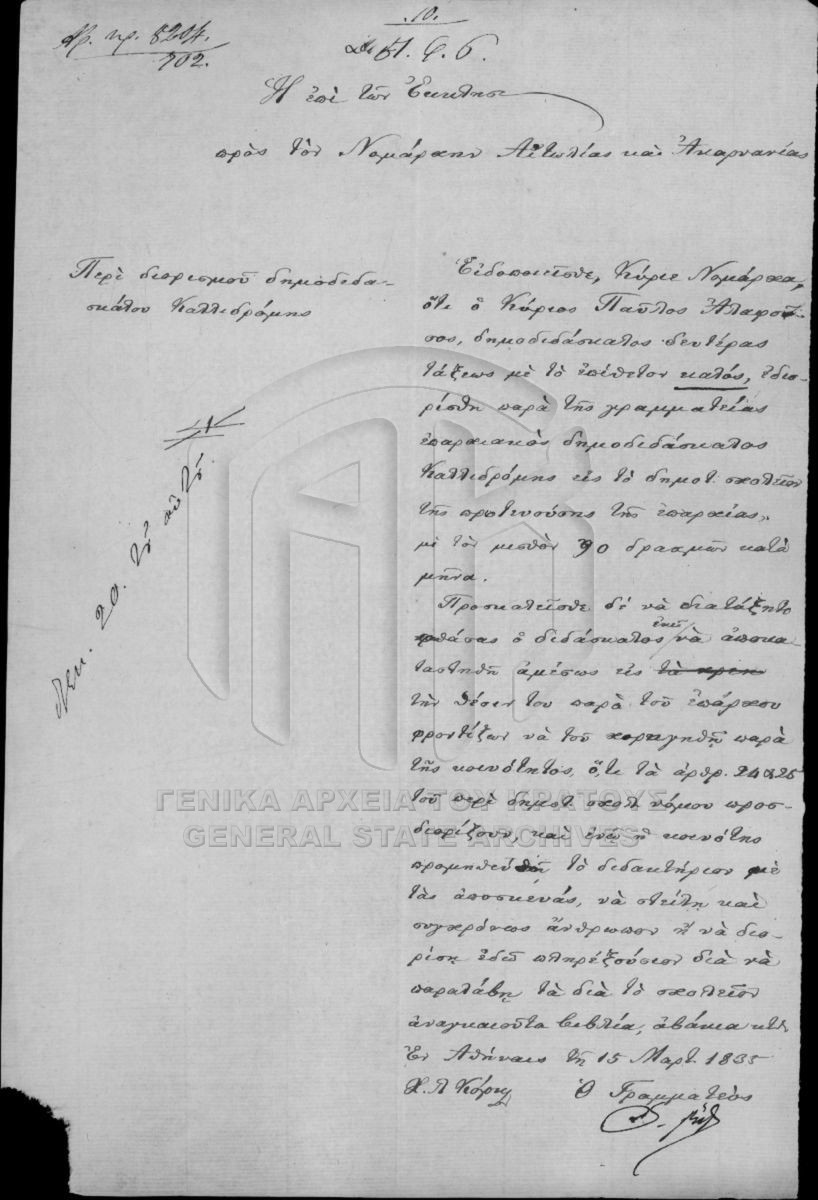 Αρ. πρ. 8204.
702.
10.
Ἡ ἐπὶ τῶν Ἐκκλησ
πρὸς τὸν Νομάρχην Αἰτωλίας καὶ Ἀκαρνανίας
Περὶ διορισμοῦ δημοδιδα-
σκάλου Καλλιδρόμης
Εἰδοποιεῖσθε, Κύριε Νομάρχα,
ὅτι ὁ Κύριος Παῦλος
σος, δημοδιδάσκαλος δευτέρας
τάξεως μὲ τὸ ἐπίθετον καλός, ἐδιο-
ρίσθη παρὰ τῆς γραμματείας
ἐπαρχιακὸς δημοδιδάσκαλος
Καλλιδρόμης εἰς τὸ δημοτ. σχολεῖον
τῆς πρωτευούσης τῆς ἐπαρχίας,
μὲ τὸν μισθὸν 90 δραχμῶν κατὰ
μῆνα.
Προσκαλεῖσθε δὲ νὰ διατάξητε
φθάσας ὁ διδάσκαλος ἐκεῖ νὰ ἀποκα-
ταστηθῇ ἀμέσως εἰς
τὴν θέσιν του παρὰ τοῦ ἐπάρχου
φροντίζων νὰ τοῦ χορηγηθῇ παρὰ
τῆς κοινότητος, ὅ,τι τὰ ἀρθρ. 24 & 25
τοῦ περὶ δημοτ. σχολ. νόμου προσ-
διορίζουν, καὶ ἐνῷ ἡ κοινότης
προμηθεύῃ τὸ διδακτήριον μὲ
τὰς ἀποσκευάς, νὰ στείλῃ καὶ
συγχρόνως ἄνθρωπον ἢ νὰ διο-
ρίσῃ ἐδῶ πληρεξούσιον διὰ νὰ
παραλάβῃ τὰ διὰ τὸ σχολεῖον
ἀναγκαιοῦντα βιβλία, ἀβάκια κτλ
Ἐν Ἀθήναις τῇ 15 Μαρτ. 1835
Ὁ Γραμματεὺς
ΓΕΝΙΚΑ ΑΡΧΕΙΑ ΤΟΥ ΚΡΑΤΟΥΣ
GENERAL STATE ARCHIVES